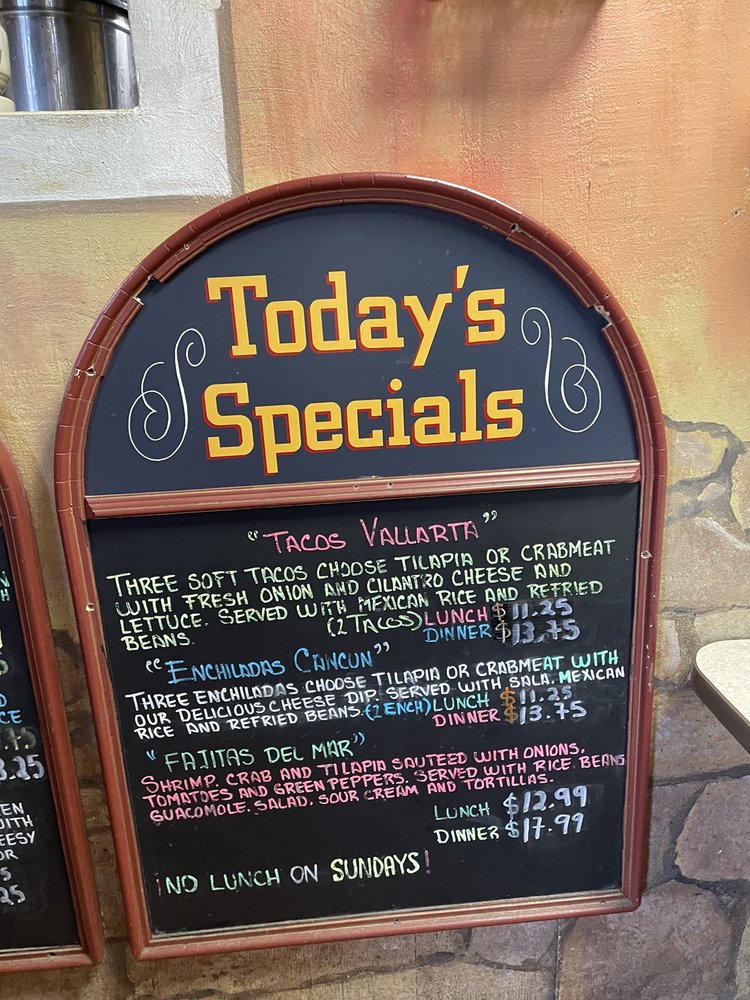 Today's
Specials
"TACOS VALLARTA"
THREE SOFT TACOS CHOOSE TILAPIA OR CRABMEAT
WITH FRESH ONION AND CILANTRO CHEESE AND
LETTUCE. SERVED WITH MEXICAN RICE AND REFRIED
BEANS. (2 TACOS) LUNCH $11.25
DINNER $13.75
"ENCHILADAS CANCUN"
THREE ENCHILADAS CHOOSE TILAPIA OR CRABMEAT WITH
OUR DELICIOUS CHEESE DIP. SERVED WITH SALA. MEXICAN
RICE AND REFRIED BEANS. (2 ENCH) LUNCH $11.25
DINNER $13.75
"FAJITAS DEL MAR"
SHRIMP, CRAB AND TILAPIA SAUTEED WITH ONIONS,
TOMATOES AND GREEN PEPPERS. SERVED WITH RICE, BEANS
GUACOMOLE, SALAD, SOUR CREAM AND TORTILLAS.
LUNCH $12.99
DINNER $17.99
¡NO LUNCH ON SUNDAYS!